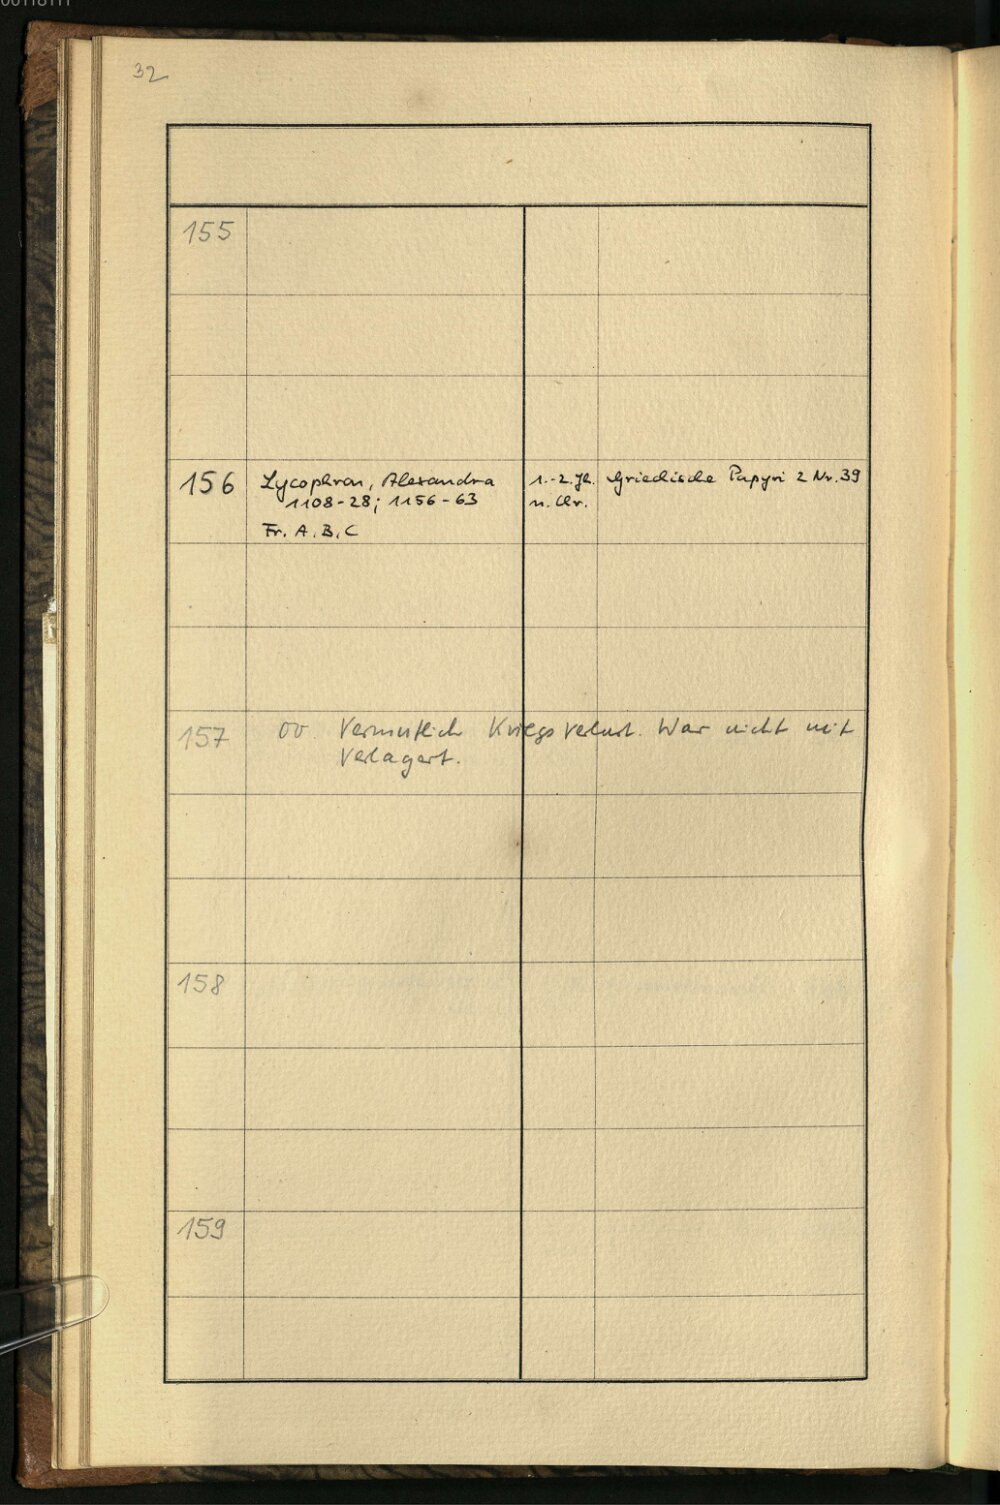 32
155
156 Lycophron, Alexandra 1.-2. Jh. Griechische Papyri 2 Nr. 39
1108-28; 1156-63 n. Chr.
Fr. A, B, C
157 Vermutlich Kriegsverlust. War nicht mit
verlagert.
158
159